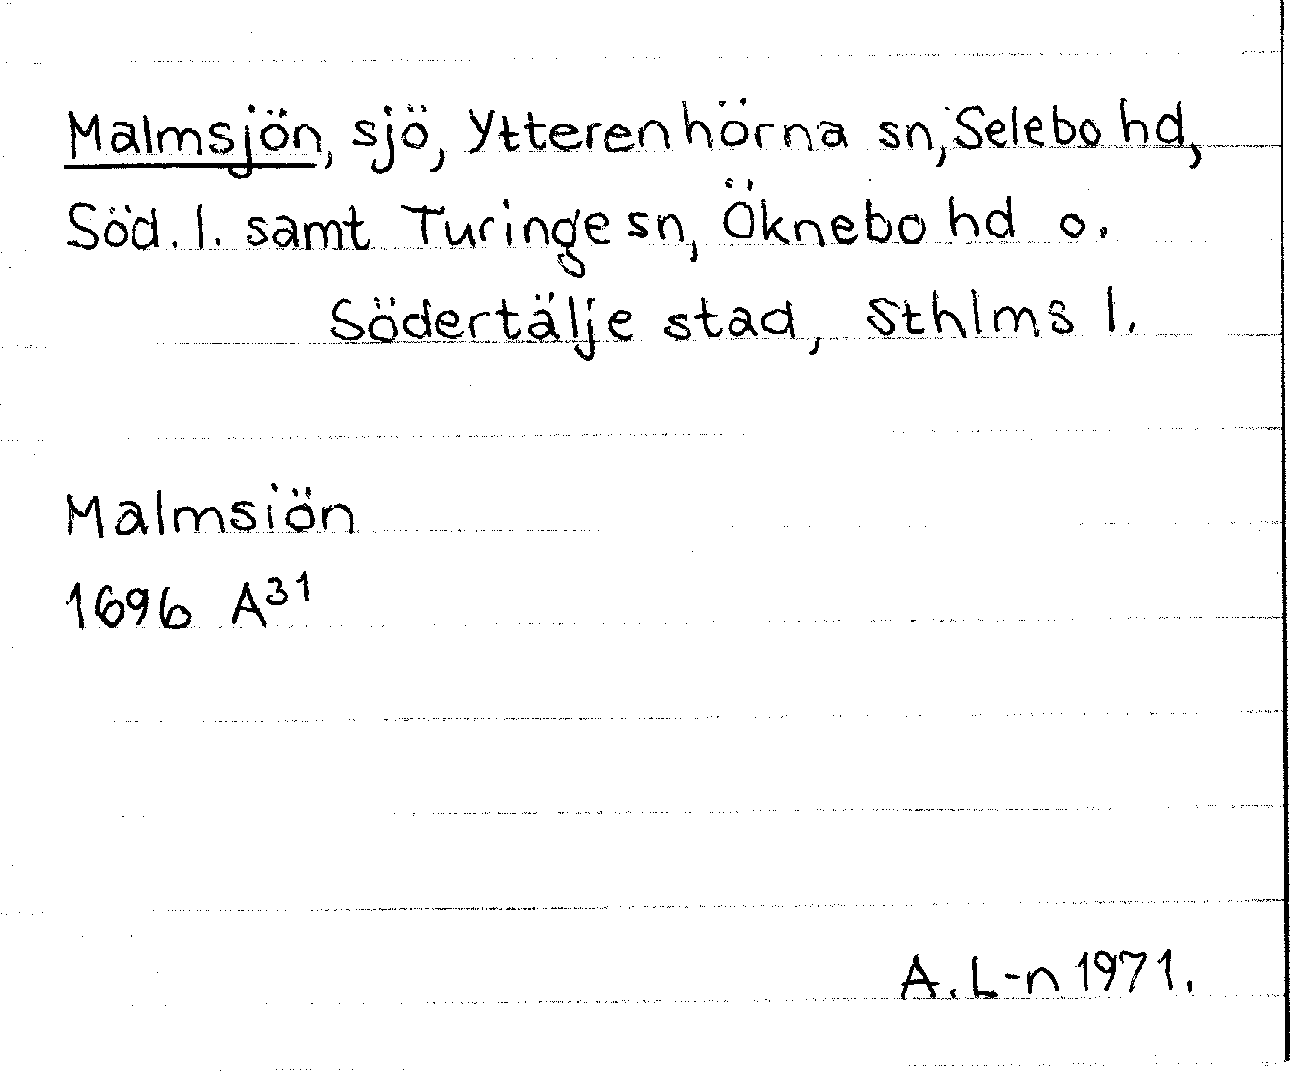 Malmsjön, sjö, Ytterenhörna sn, Selebo hd,
Söd. l. samt Turinge sn, Öknebo hd o.
Södertälje stad, Sthlms l.
Malmsiön
1696 A³¹
A. L-n 1971.